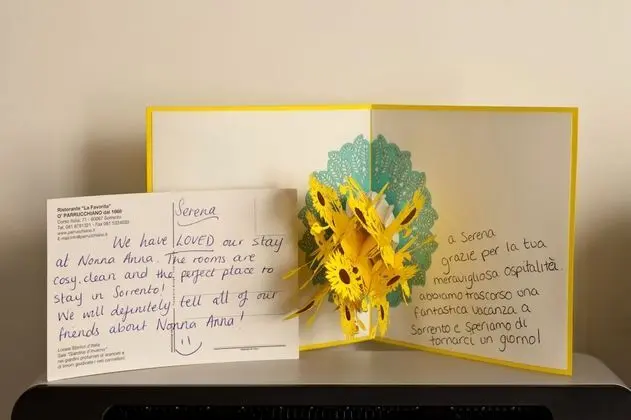 Ristorante "La Favorita"
O' PARRUCCHIANO dal 1868
Corso Italia, 71 - 80067 Sorrento
www.parrucchiano.it
Serena
We have LOVED our stay
at Nonna Anna. The rooms are
cosy, clean and the perfect place to
stay in Sorrento!
We will definitely tell all of our
friends about Nonna Anna!
Locale Storico d'Italia
Sala "Giardino d'Inverno"
a Serena
grazie per la tua
meravigliosa ospitalità.
abbiamo trascorso una
fantastica vacanza a
Sorrento e speriamo di
tornarci un giorno!